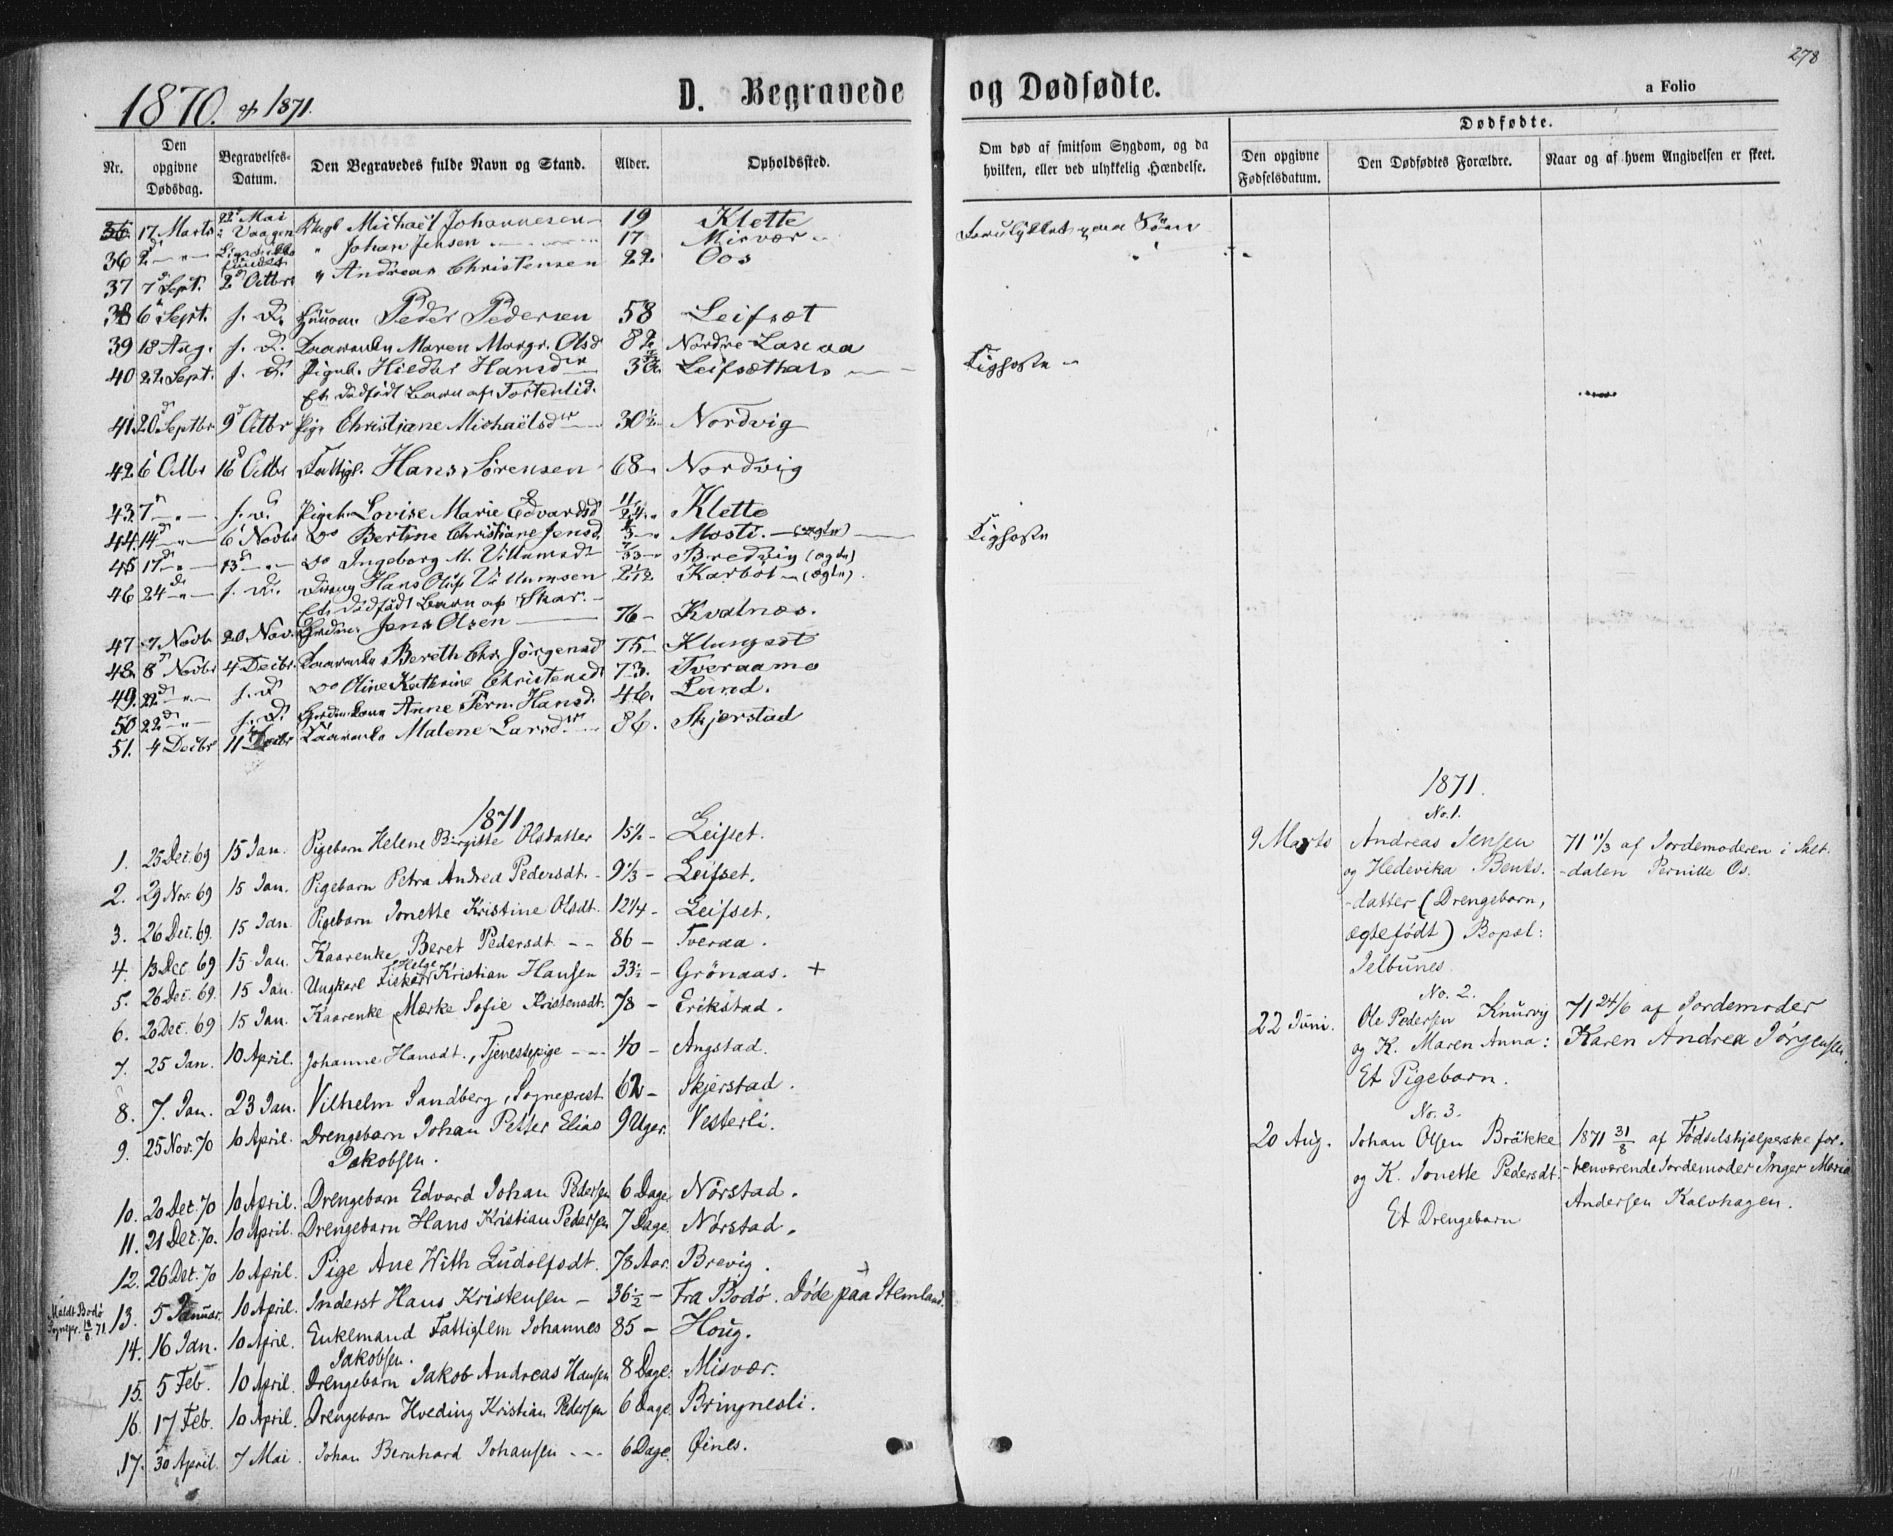 278
1870. & 1871.
D. Begravede og Dødfødte.
a Folio
Nr.
Den opgivne Dødsdag.
Begravelses-Datum.
Den Begravedes fulde Navn og Stand.
Alder.
Opholdssted.
Om død af smitsom Sygdom, og da hvilken, eller ved ulykkelig Hændelse.
Dødfødte.
Den opgivne Fødselsdatum.
Den Dødfødtes Forældre.
Naar og af hvem Angivelsen er skeet.
17 Marts 22 Mai Michaël Johannesen 19 Klette
36 2 Johan Jensen 17 Misvær
37 7 Sept. 2 Octbr " Andreas Christensen 22. Oos
38 6 Sept. s. D. Peder Pedersen 58 Leifset
39 18 Aug. s. D. Maren Margr. Olsd 82 Nordre
40 22 Sept. s. D. Pigeb. Hansd Leifsæthals
Et dødfødt Barn af
41 20 Septbr 9 Octbr Pige Christiane Michaëlsd 30½ Nordvig
42. 6 Octbr 16 Octbr Hans Sørensen 68 Nordvig
43. 7 s. D. Pigeb. Lovise Marie Edvardsd 11/24 Klette
44. 14 6 Novbr Do Bertine Christiane Jensd. Mosti
45 17 13 Do Ingeborg M. Villumsd (ægte)
46 24 s. D. Hans Villumsen Karbøl (ægte).
Et dødfødt Barn af Skar.
47 7 Novb 20 Nov. Jens Olsen 76 Kvalnæs.
48. 8 Novbr 4 Decbr. Bereth Chr. Jørgensd 75 Klungset
49. 22 s. D Do Oline Kathrine Christensd 73. Tveraamo
50 22 s. D. Anne Pern. Hansd. 46. Lund.
51. 4 Decbr 11 Decbr Malene Larsd. 86. Skjerstad
1871
1. 25 Dec. 69 15 Jan. Pigebarn Helene Birgitte Olsdatter 15½ - Leifset.
2. 29 Nov. 69 15 Jan. Pigebarn Petra Andrea Pedersdt. - 9⅓ - Leifset.
3. 26 Dec. 69. 15 Jan Pigebarn Jonette Kristine Olsdt. 12¼ - Leifset.
4. 13 Dec 69 15 Jan. Kaarenke Beret Pedersdt. -- 86 - Tveraa.
5. 26 Dec. 69. 15 Jan. Ungkarl Fisker Helge Kristian Hansen 33½ - Grönaas. +
6. 20 Dec. 69 15 Jan. Kaarenke Mærke Sofie Kristensdt. 78 - Erikstad.
7. 25 Jan. 10 April. Johanne Hansdt., Tjenestepige -- 40 - Angstad.
8. 7. Jan. 23 Jan. Vilhelm Sandberg, Sogneprest 62 - Skjerstad.
9. 25 Nov. 70 10 April. Drengebarn Johan Petter Elias 9 Uger. Vesterli.
Jakobsen.
10. 20 Dec. 70 10 April. Drengebarn Edvard Johan Pedersen 6 Dage Nörstad.
11. 21 Dec. 70. 10 April. Drengebarn Hans Kristian Pedersen 7 Dage Nørstad.
12. 26 Dec. 70 10 April. Pige Ane With Ludolfsdt. 78 Aar. Brevig.
13. 5 Januar. 10 April. Inderst Hans Kristensen - 36½ - Fra Bodø. Døde paa Stemland.
Meldt Bodö Sognepr. 18/8 71
14. 16 Jan. 10 April. Enkemand Fattiglem Johannes 85 - Houg.
Jakobsen.
15. 5 Feb. 10 April. Drengebarn Jakob Andreas Hansen 8 Dage. Misvær.
16. 17 Feb. 10 April. Drengebarn Hveding Kristian Pedersen 6 Dage Bringnesli.
17. 30 April. 7 Mai Johan Bernhard Johansen --- 6 Dage Øines.
Forulykket paa Søen
Kighoste
Kighoste
1871.
No. 1.
9 Marts Andreas Jensen og Hedevika Bents-datter (Drengebarn, ægtefødt) Bopæl: Jelbunes
71 11/3 af Jordemoderen i Salt-dalen Pernille Os.
No. 2.
22 Juni. Ole Pedersen Knurvig og K. Maren Anna: Et Pigebarn.
71 24/6 af Jordemoder Karen Andrea Jørgensen.
No. 3.
20 Aug. Johan Olsen Bräkke og K. Jonette Pedersdt. Et Drengebarn
1871 31/8 af Fødselshjelperske for-henværende Jordemoder Inger Maria Andersen Kalvhagen.